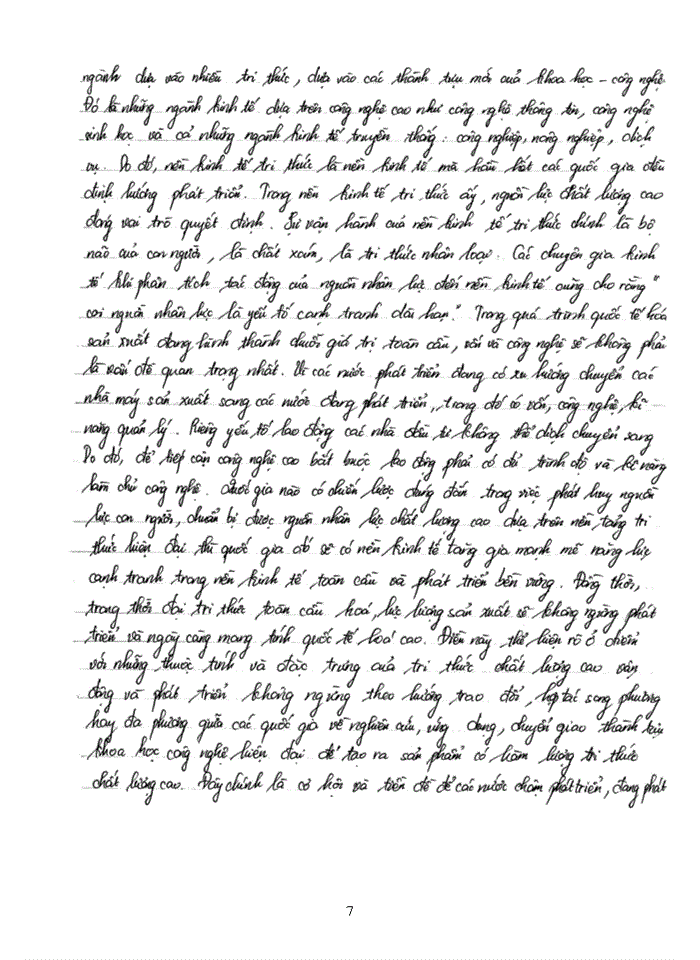 ngành dựa vào nhiều tri thức, dựa vào các thành tựu mới của khoa học - công nghệ.
Đó là những ngành kinh tế dựa trên công nghệ cao như công nghệ thông tin, công nghệ
sinh học và cả những ngành kinh tế truyền thống: công nghiệp, nông nghiệp, dịch
vụ. Do đó, nền kinh tế tri thức là nền kinh tế mà hầu hết các quốc gia đều
định hướng phát triển. Trong nền kinh tế tri thức ấy, nguồn lực chất lượng cao
đóng vai trò quyết định. Sự vận hành của nền kinh tế tri thức chính là bộ
não của con người, là chất xám, là tri thức nhân loại. Các chuyên gia kinh
tế khi phân tích tác động của nguồn nhân lực đến nền kinh tế cũng cho rằng "
coi nguồn nhân lực là yếu tố cạnh tranh dài hạn." Trong quá trình quốc tế hóa
sản xuất đang hình thành chuỗi giá trị toàn cầu, vốn và công nghệ sẽ không phải
là vấn đề quan trọng nhất. Vì các nước phát triển đang có xu hướng chuyển các
nhà máy sản xuất sang các nước đang phát triển, trong đó có vốn, công nghệ, kĩ
năng quản lý. Riêng yếu tố lao động các nhà đầu tư không thể dịch chuyển sang.
Do đó, để tiếp cận công nghệ cao bắt buộc lao động phải có đủ trình độ và kĩ năng
làm chủ công nghệ. Quốc gia nào có chiến lược đúng đắn trong việc phát huy nguồn
lực con người, chuẩn bị được nguồn nhân lực chất lượng cao dựa trên nền tảng tri
thức hiện đại thì quốc gia đó sẽ có nền kinh tế tăng gia mạnh mẽ năng lực
cạnh tranh trong nền kinh tế toàn cầu và phát triển bền vững. Đồng thời,
trong thời đại tri thức toàn cầu hoá, lực lượng sản xuất sẽ không ngừng phát
triển và ngày càng mang tính quốc tế hoá cao. Điều này thể hiện rõ ở điểm
với những thuộc tính và đặc trưng của tri thức chất lượng cao vận
động và phát triển không ngừng theo hướng trao đổi, hợp tác song phương
hay đa phương giữa các quốc gia về nghiên cứu, ứng dụng, chuyển giao thành tựu
khoa học công nghệ hiện đại để tạo ra sản phẩm có hàm lượng tri thức
chất lượng cao. Đây chính là cơ hội và tiền đề để các nước chậm phát triển, đang phát
7